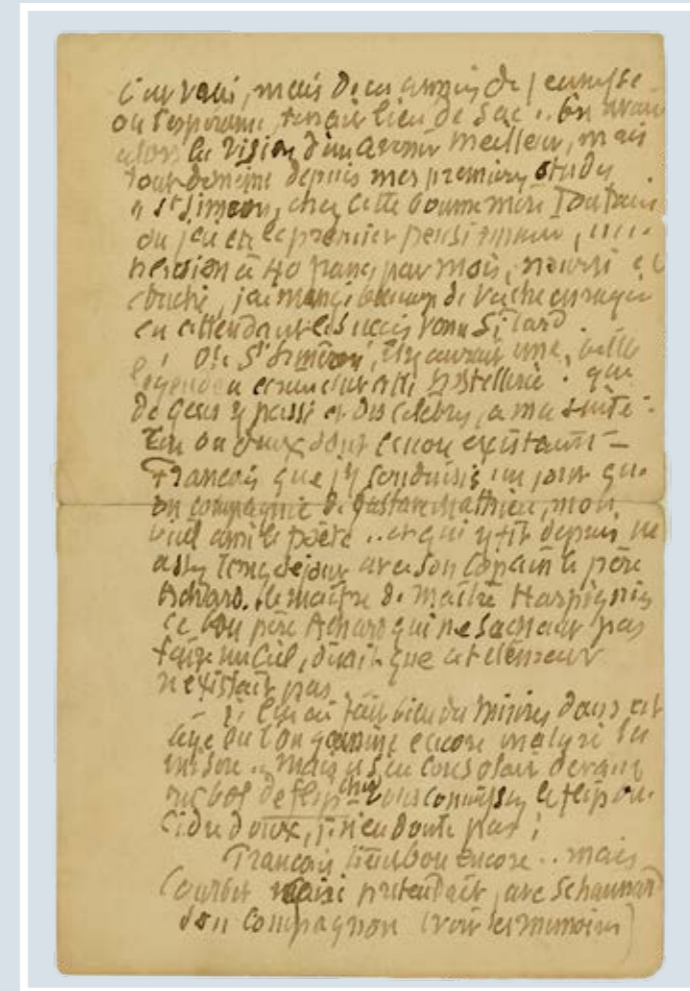 c'est vrai, mais Dieu de jeunesse
où l'espérance, tenait lieu de sac .. On avait
alors la vision d'un avenir meilleur, mais
tout de même depuis mes premières études
à St Siméon, chez cette bonne mère Toutain
où j'ai été le premier pensionnaire,
pension à 40 francs par mois, nourri et
couché, j'ai mangé beaucoup de vache enragée
en attendant le succès venu si tard.
de St Siméon, il y aurait une belle
légende à écrire sur cette hostellerie. que
de gens y passé et des célèbres, à ma suite.
un ou deux dont encore existants —
Français que j'y conduisis un jour
en compagnie de Gustave Mathieu, mon
vieil ami le poète .. et qui y fit depuis un
assez long séjour avec son copain le père
Achard. le maître de maître Harpignies
ce bon père Achard qui ne sachant pas
faire un ciel, disait que cet élément
n'existait pas
J'en ai fait bien du dans cet
âge où l'on encore malgré la
misère .. mais on se consolait devant
un bol de flip cher vous connaissez le flip au
cidre doux, je n'en doute pas !
Français tient bon encore .. mais
Courbet aussi prétendait, avec Schaunard
son compagnon (voir ses mémoires)